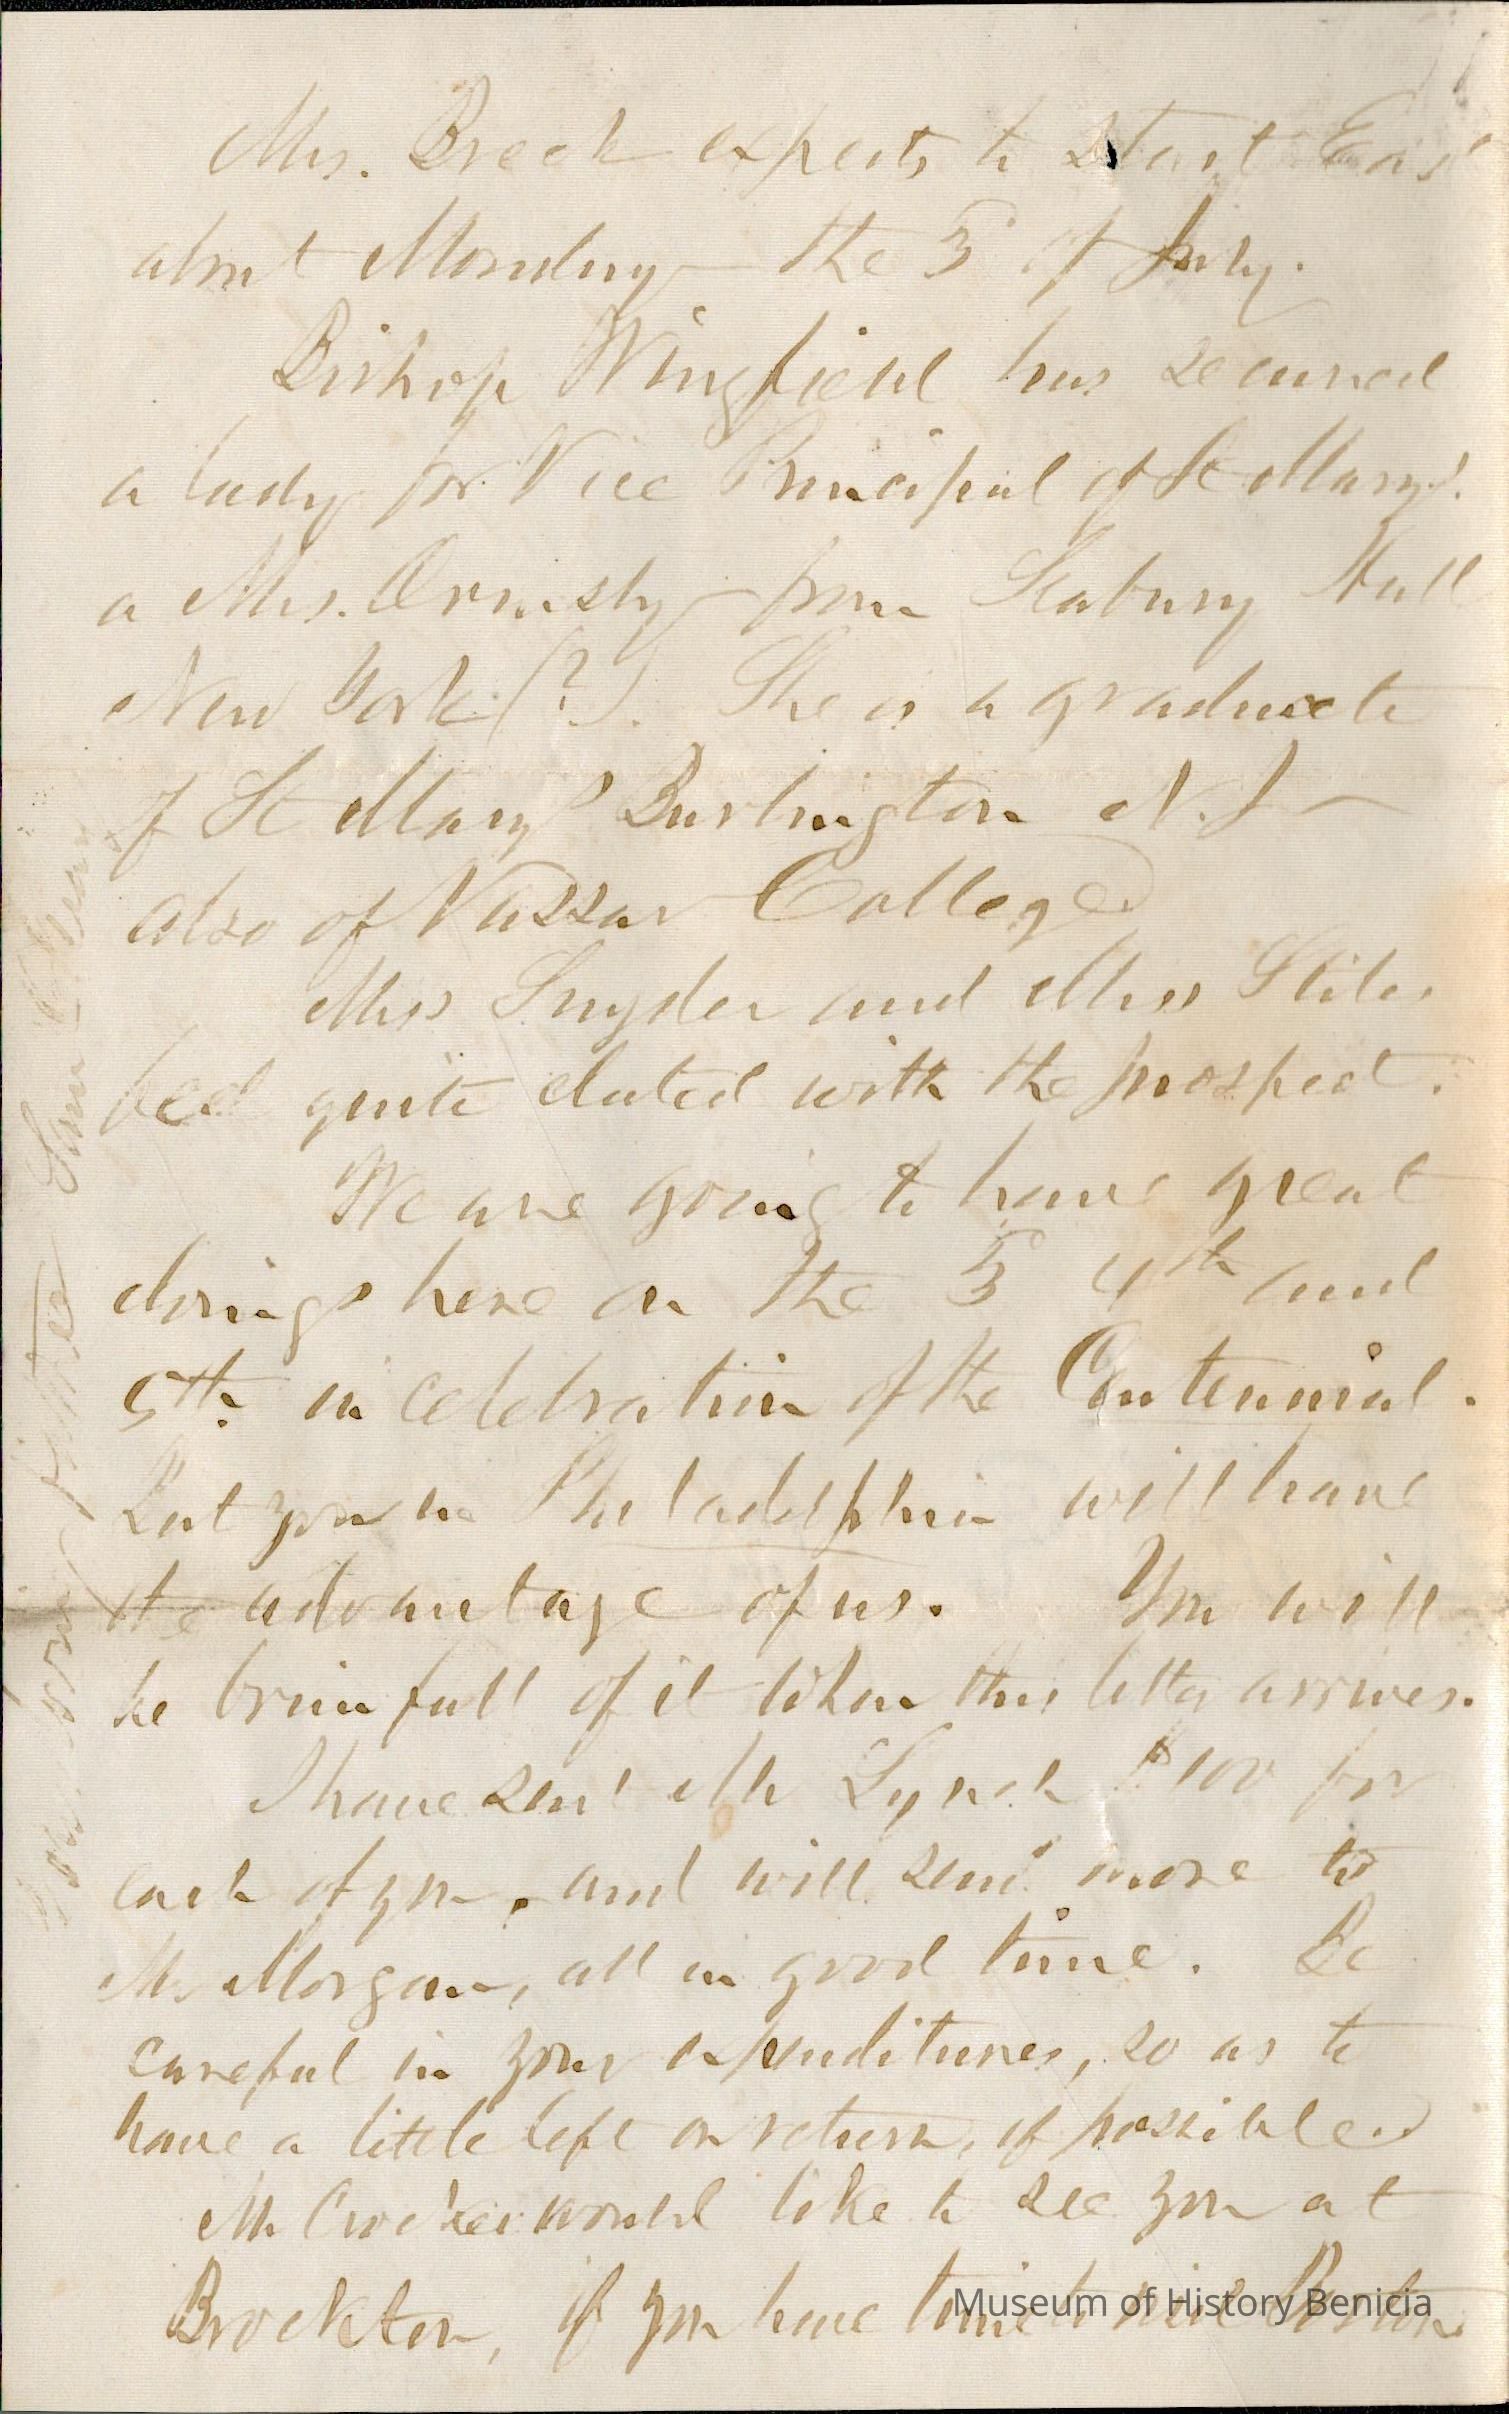 Mrs. Breck expects to start East
about Monday the 3 of July.
Bishop Wingfield has secured
a lady for Vice Principal of St Mary's.
a Mrs. Ormsby from Seabury Hall
New York (?). She is a graduate
of St Mary's Burlington N.J
also of Vassar College
Miss Snyder and Miss Stiles
feel quite elated with the prospect.
We are going to have great
doings here on the 3 4th and
5th. in celebration of the Centennial.
But you in Philadelphia will have
the advantage of us. You will
be brim full of it when this letter arrives.
I have sent Mr Lynch $100 for
each of you, and will send more to
Mr Morgan, all in good time. Be
careful in your expenditures, so as to
have a little left on return, if possible.
Mr Crocker would like to see you at
Brockton, if you have time to visit Boston
Your loving father Sam
Museum of History Benicia